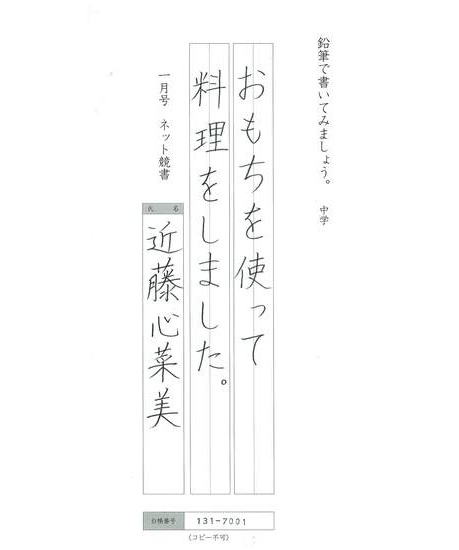 鉛筆で書いてみましょう。 中学
おもちを使って
料理をしました。
一月号 ネット競書
氏 名
近藤心菜美
台帳番号 131-7001
(コピー不可)